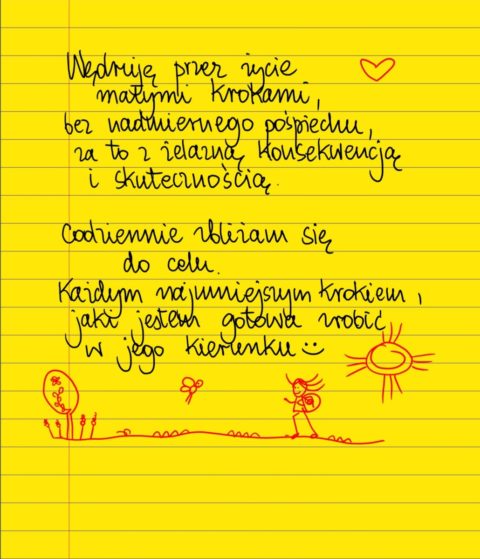 Wędruję przez życie
małymi krokami,
bez nadmiernego pośpiechu,
za to z żelazną konsekwencją
i skutecznością.
Codziennie zbliżam się
do celu.
Każdym najmniejszym krokiem,
jaki jestem gotowa zrobić
w jego kierunku :)